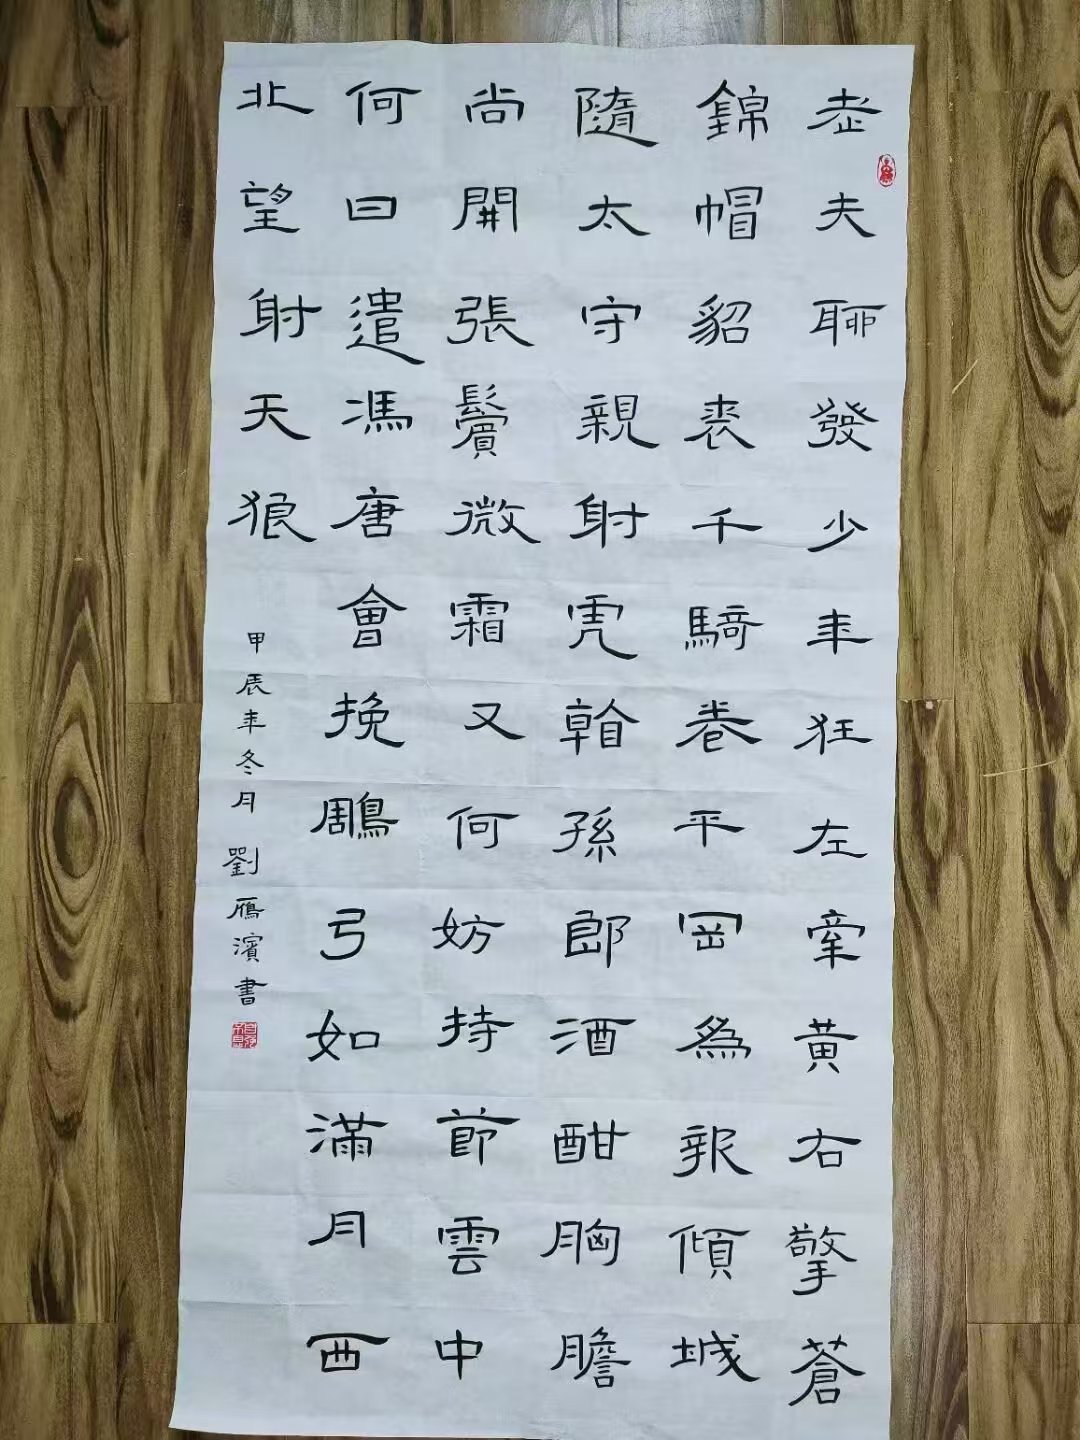 老夫聊發少年狂左牽黃右擎蒼
錦帽貂裘千騎卷平岡為報傾城
隨太守親射虎看孫郎酒酣胸膽
尚開張鬢微霜又何妨持節雲中
何日遣馮唐會挽鵰弓如滿月西
北望射天狼
甲辰年冬月劉雁濱書